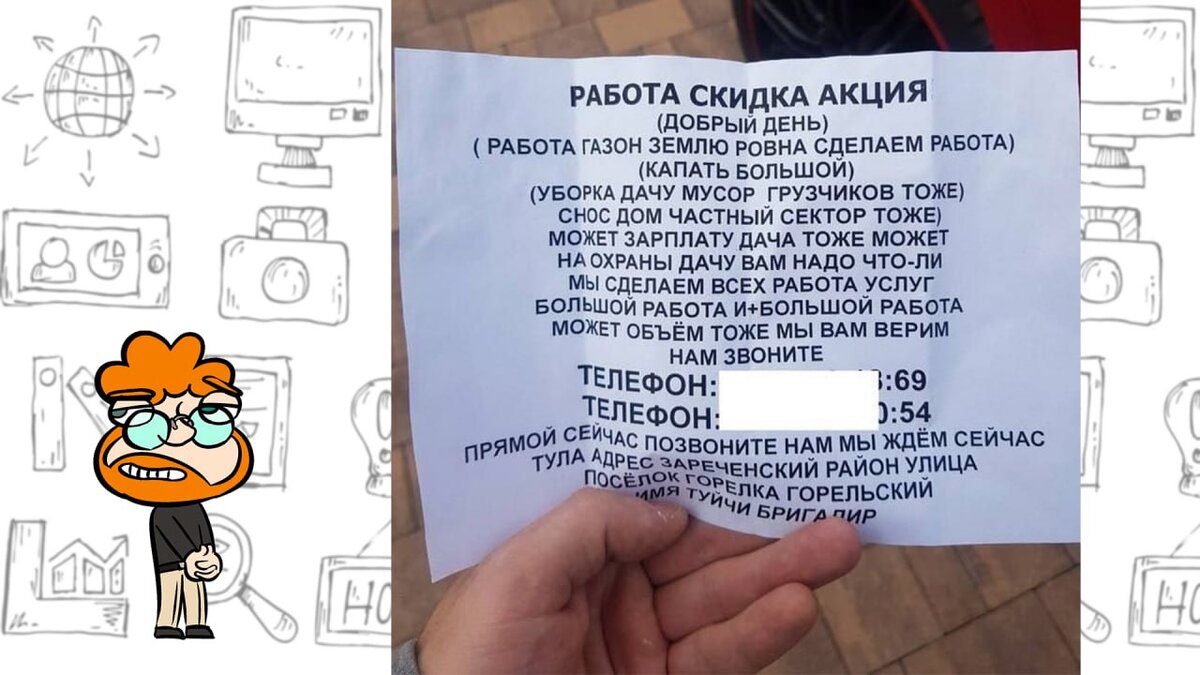 РАБОТА СКИДКА АКЦИЯ
(ДОБРЫЙ ДЕНЬ)
( РАБОТА ГАЗОН ЗЕМЛЮ РОВНА СДЕЛАЕМ РАБОТА)
(КАПАТЬ БОЛЬШОЙ)
(УБОРКА ДАЧУ МУСОР ГРУЗЧИКОВ ТОЖЕ)
СНОС ДОМ ЧАСТНЫЙ СЕКТОР ТОЖЕ)
МОЖЕТ ЗАРПЛАТУ ДАЧА ТОЖЕ МОЖЕТ
НА ОХРАНЫ ДАЧУ ВАМ НАДО ЧТО-ЛИ
МЫ СДЕЛАЕМ ВСЕХ РАБОТА УСЛУГ
БОЛЬШОЙ РАБОТА И+БОЛЬШОЙ РАБОТА
МОЖЕТ ОБЪЁМ ТОЖЕ МЫ ВАМ ВЕРИМ
НАМ ЗВОНИТЕ
ТЕЛЕФОН: :69
ТЕЛЕФОН: :54
ПРЯМОЙ СЕЙЧАС ПОЗВОНИТЕ НАМ МЫ ЖДЁМ СЕЙЧАС
ТУЛА АДРЕС ЗАРЕЧЕНСКИЙ РАЙОН УЛИЦА
ПОСЁЛОК ГОРЕЛКА ГОРЕЛЬСКИЙ
ИМЯ ТУЙЧИ БРИГАДИР